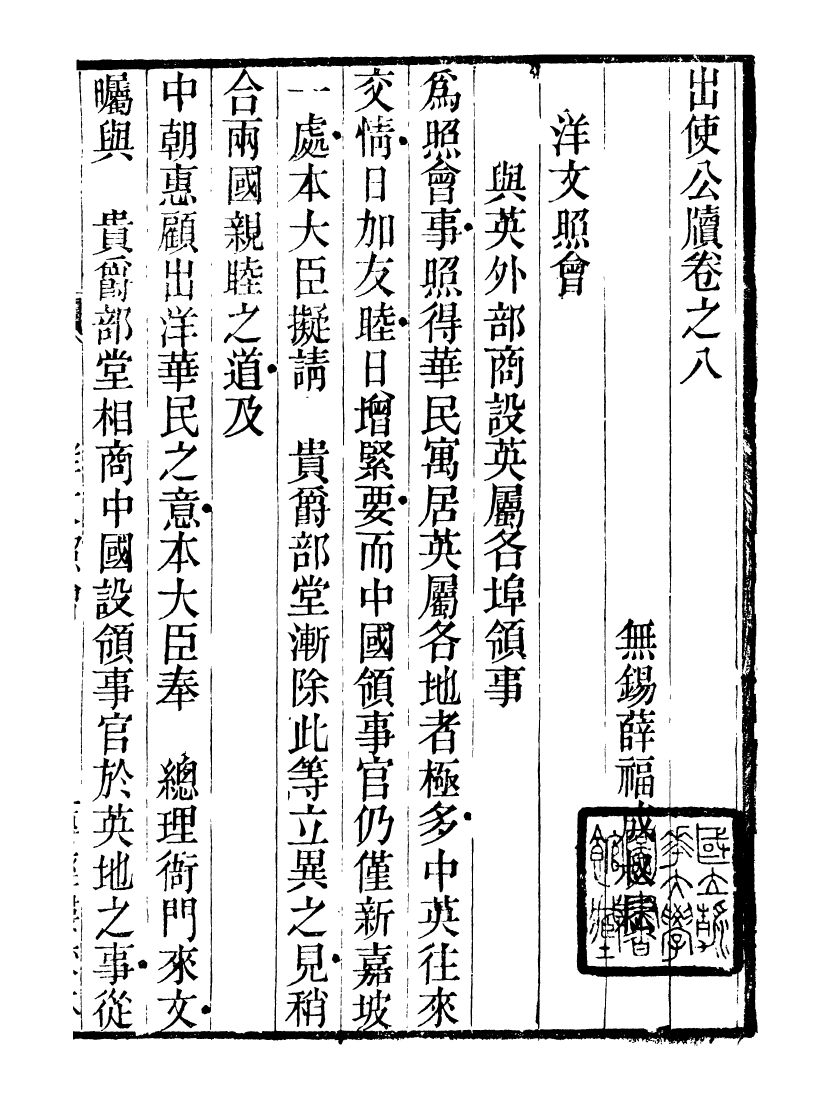 出使公牘卷之八
無錫薛福成叔耘
洋文照會
與英外部商設英屬各埠領事
爲照會事照得華民寓居英屬各地者極多中英往來
交情日加友睦日增緊要而中國領事官仍僅新嘉坡
一處本大臣擬請　貴爵部堂漸除此等立異之見稍
合兩國親睦之道及
中朝惠顧出洋華民之意本大臣奉　總理衙門來文
囑與　貴爵部堂相商中國設領事官於英地之事從